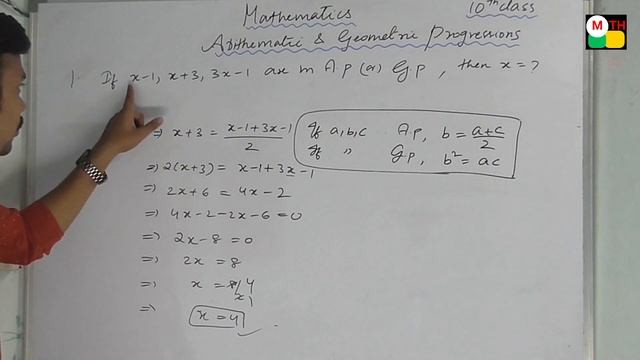 Mathematics
10th class
MTH
Arithmatic & Geometric Progressions
1. If x-1, x+3, 3x-1 are in A.P (or) G.P, then x=?
If a,b,c AP, b = a+c/2
If " GP, b² = ac
⇒ x+3 = x-1+3x-1/2
⇒ 2(x+3) = x-1+3x-1
⇒ 2x+6 = 4x-2
⇒ 4x-2-2x-6=0
⇒ 2x-8=0
⇒ 2x = 8
⇒ x = 8/2 4
⇒ x = 4